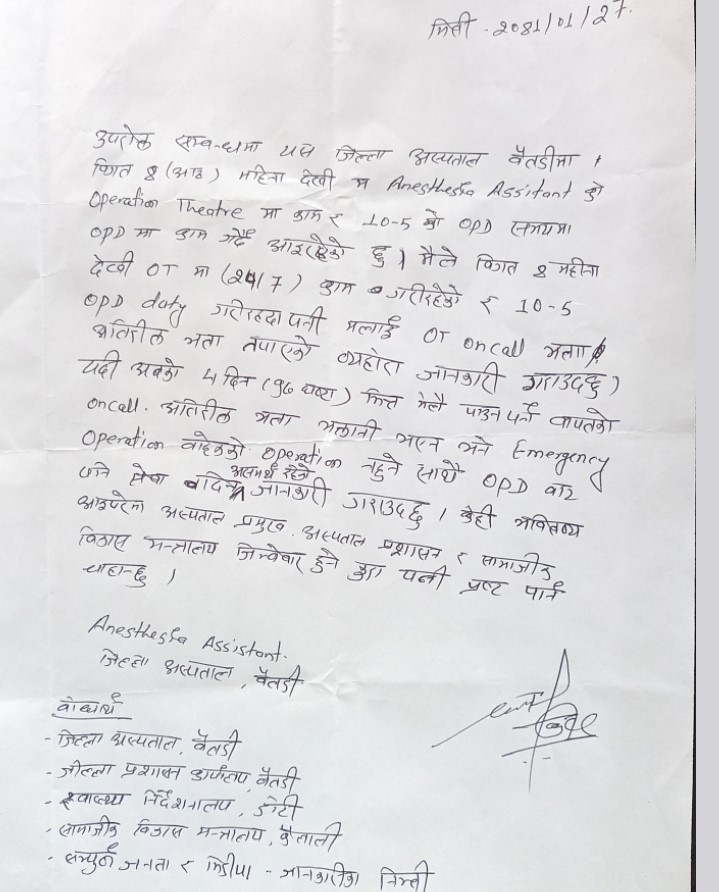 मिती - 2081/01/27.
उपरोक्त सम्बन्धमा यस जिल्ला अस्पताल बैतडीमा
विगत 8 (आठ) महिना देखी म Anesthesia Assistant को
Operation Theatre मा काम र 10-5 को OPD समयमा
OPD मा काम गर्दै आइरहेको छु । मैले विगत 8 महीना
देखी OT मा (24/7) काम गरीरहेको र 10-5
OPD duty गरीरहदा पनी मलाई OT oncall भत्ता
अतिरीक्त भत्ता नपाएको व्यहोरा जानकारी गराउदछु)
यदी अबको 4 दिन (96 घण्टा) भित्र मैले पाउन पर्ने वापतको
oncall. अतिरीक्त भत्ता भुक्तानी भएन भने Emergency
Operation बाहेकको operation नहुने साथै OPD बाट
दिने सेवा दिन असमर्थ रहेको जानकारी गराउदछु । केही भवितव्य
आइपरेमा अस्पताल प्रमुख. अस्पताल प्रशासन र सामाजीक
विकास मन्त्रालय जिम्वेवार हुने कुरा पनी प्रष्ट पार्न
चाहान्छु ।
Anesthesia Assistant.
जिल्ला अस्पताल, बैतडी
बोधार्थ
- जिल्ला अस्पताल, बैतडी
- जील्ला प्रशासन कार्यलय, बैतडी
- स्वास्थ्य निर्देशनालय, डोटी
- सामाजीक विकास मन्त्रालय, कैलाली
- सम्पुर्ण जनता र मिडीया - जानकारीका निम्ती